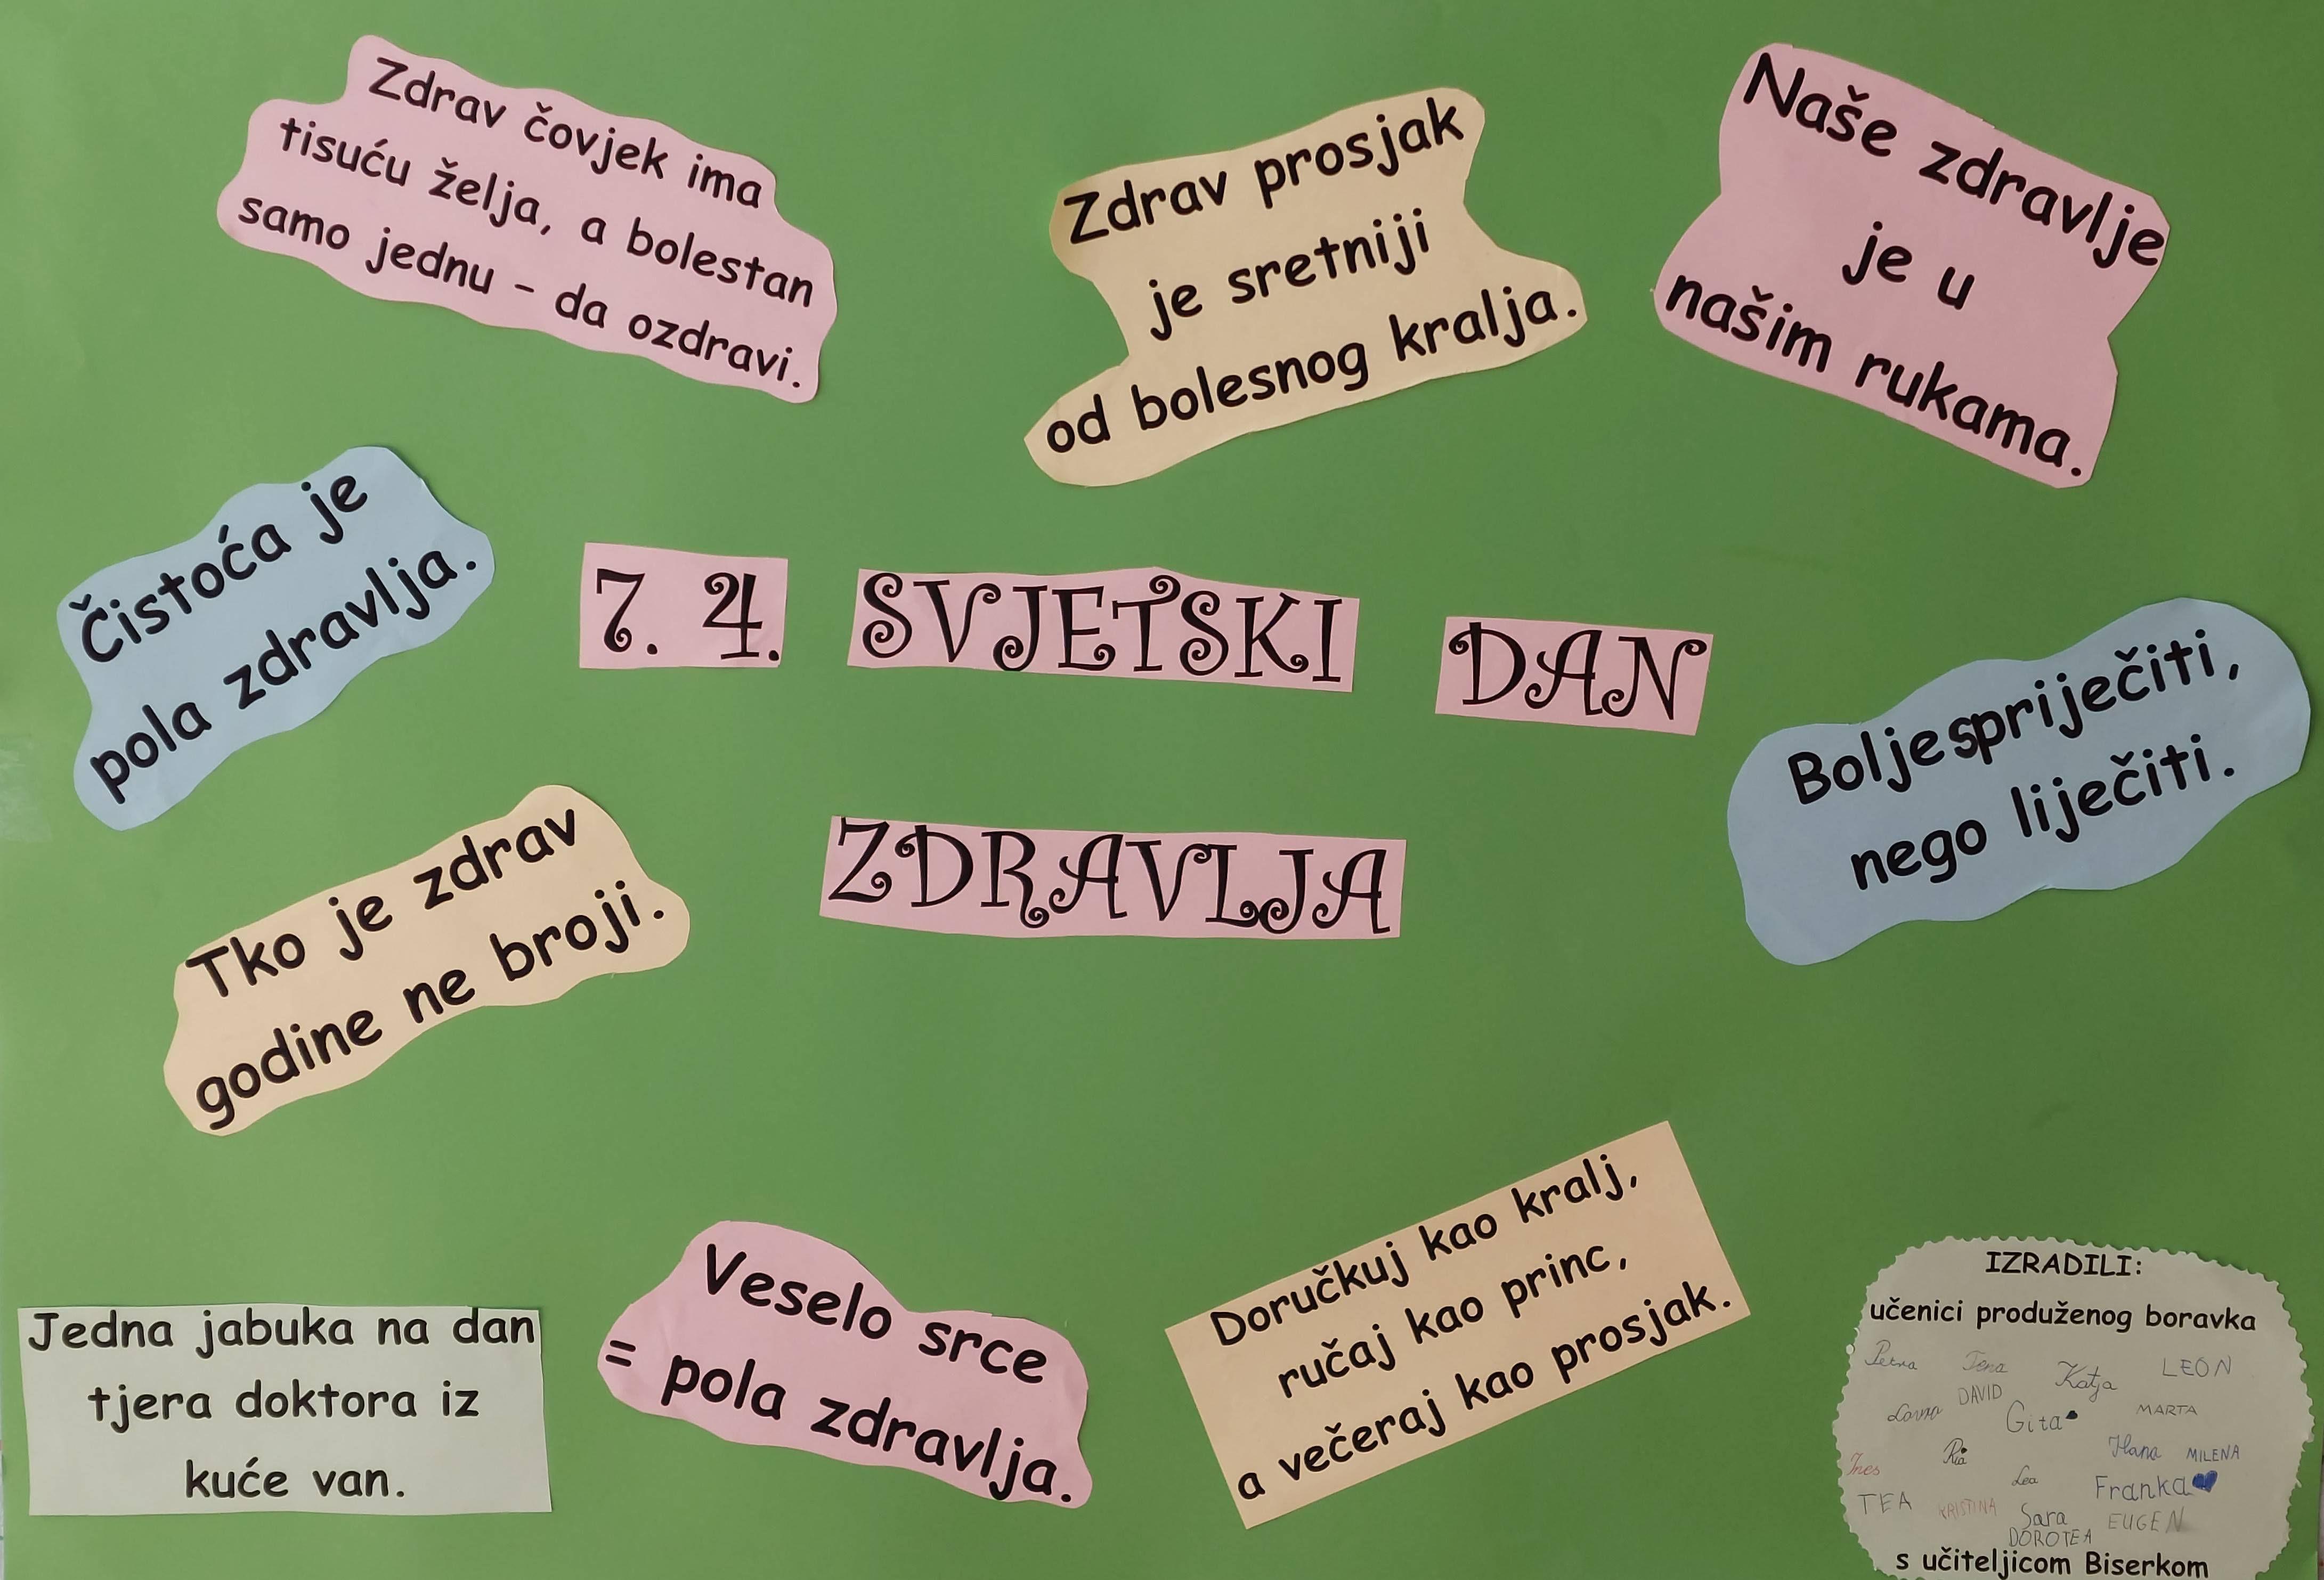 Zdrav čovjek ima
tisuću želja, a bolestan
samo jednu - da ozdravi.
Zdrav prosjak
je sretniji
od bolesnog kralja.
Naše zdravlje
je u
našim rukama.
Čistoća je
pola zdravlja.
7. 4. SVJETSKI DAN
ZDRAVLJA
Bolje spriječiti,
nego liječiti.
Tko je zdrav
godine ne broji.
Jedna jabuka na dan
tjera doktora iz
kuće van.
Veselo srce
= pola zdravlja.
Doručkuj kao kralj,
ručaj kao princ,
a večeraj kao prosjak.
IZRADILI:
učenici produženog boravka
Petra Tena Katja LEON
Lovro DAVID Gita MARTA
Ines Ria Hana MILENA
Lea Franka
TEA KRISTINA Sara EUGEN
DOROTEA
s učiteljicom Biserkom